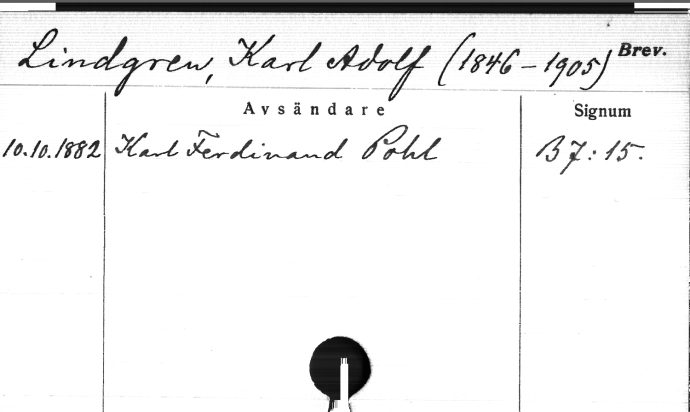 Lindgren, Karl Adolf (1846-1905) Brev.
Avsändare Signum
10.10.1882 Karl Ferdinand Pohl B 7:15.